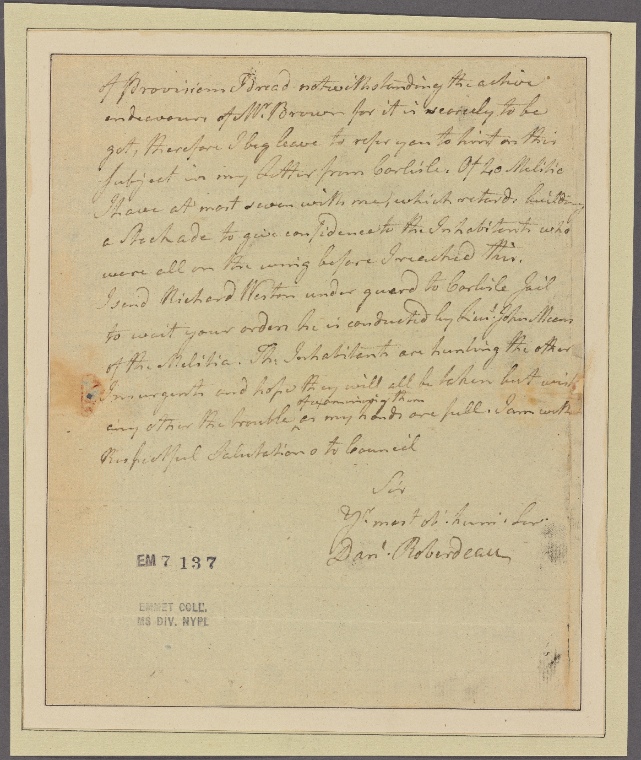 of Provisions I dread notwithstanding the active
endeavours of Mr. Brown for it is scarcely to be
got, therefore I beg leave to refer you to hint on this
subject in my letter from Carlisle. Of 40 Militia
I have at most seven with me, which retards building
a Stockade to give confidence to the Inhabitants who
were all on the wing before I reached this.
I send Richard Weston under guard to Carlisle Jail
to wait your orders he is conducted by Lieut. John Means
of the Militia. The Inhabitants are hunting the other
Insurgents and hope they will all be taken but wish
of examining them
any other the trouble as my hands are full. I am with
Respectful Salutations to Council
Sir
Yr. most ob. hum. Ser.
Danl. Roberdeau
EM 7 137
EMMET COLL.
MS DIV. NYPL